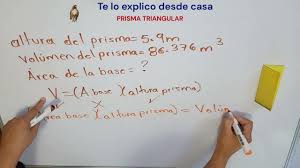 Te lo explico desde casa
PRISMA TRIANGULAR
altura del prisma=5.9m
Volúmen del prisma=86.376m³
Área de la base=?
V=(A base)(altura prisma)
área base)(altura prisma)=Volú